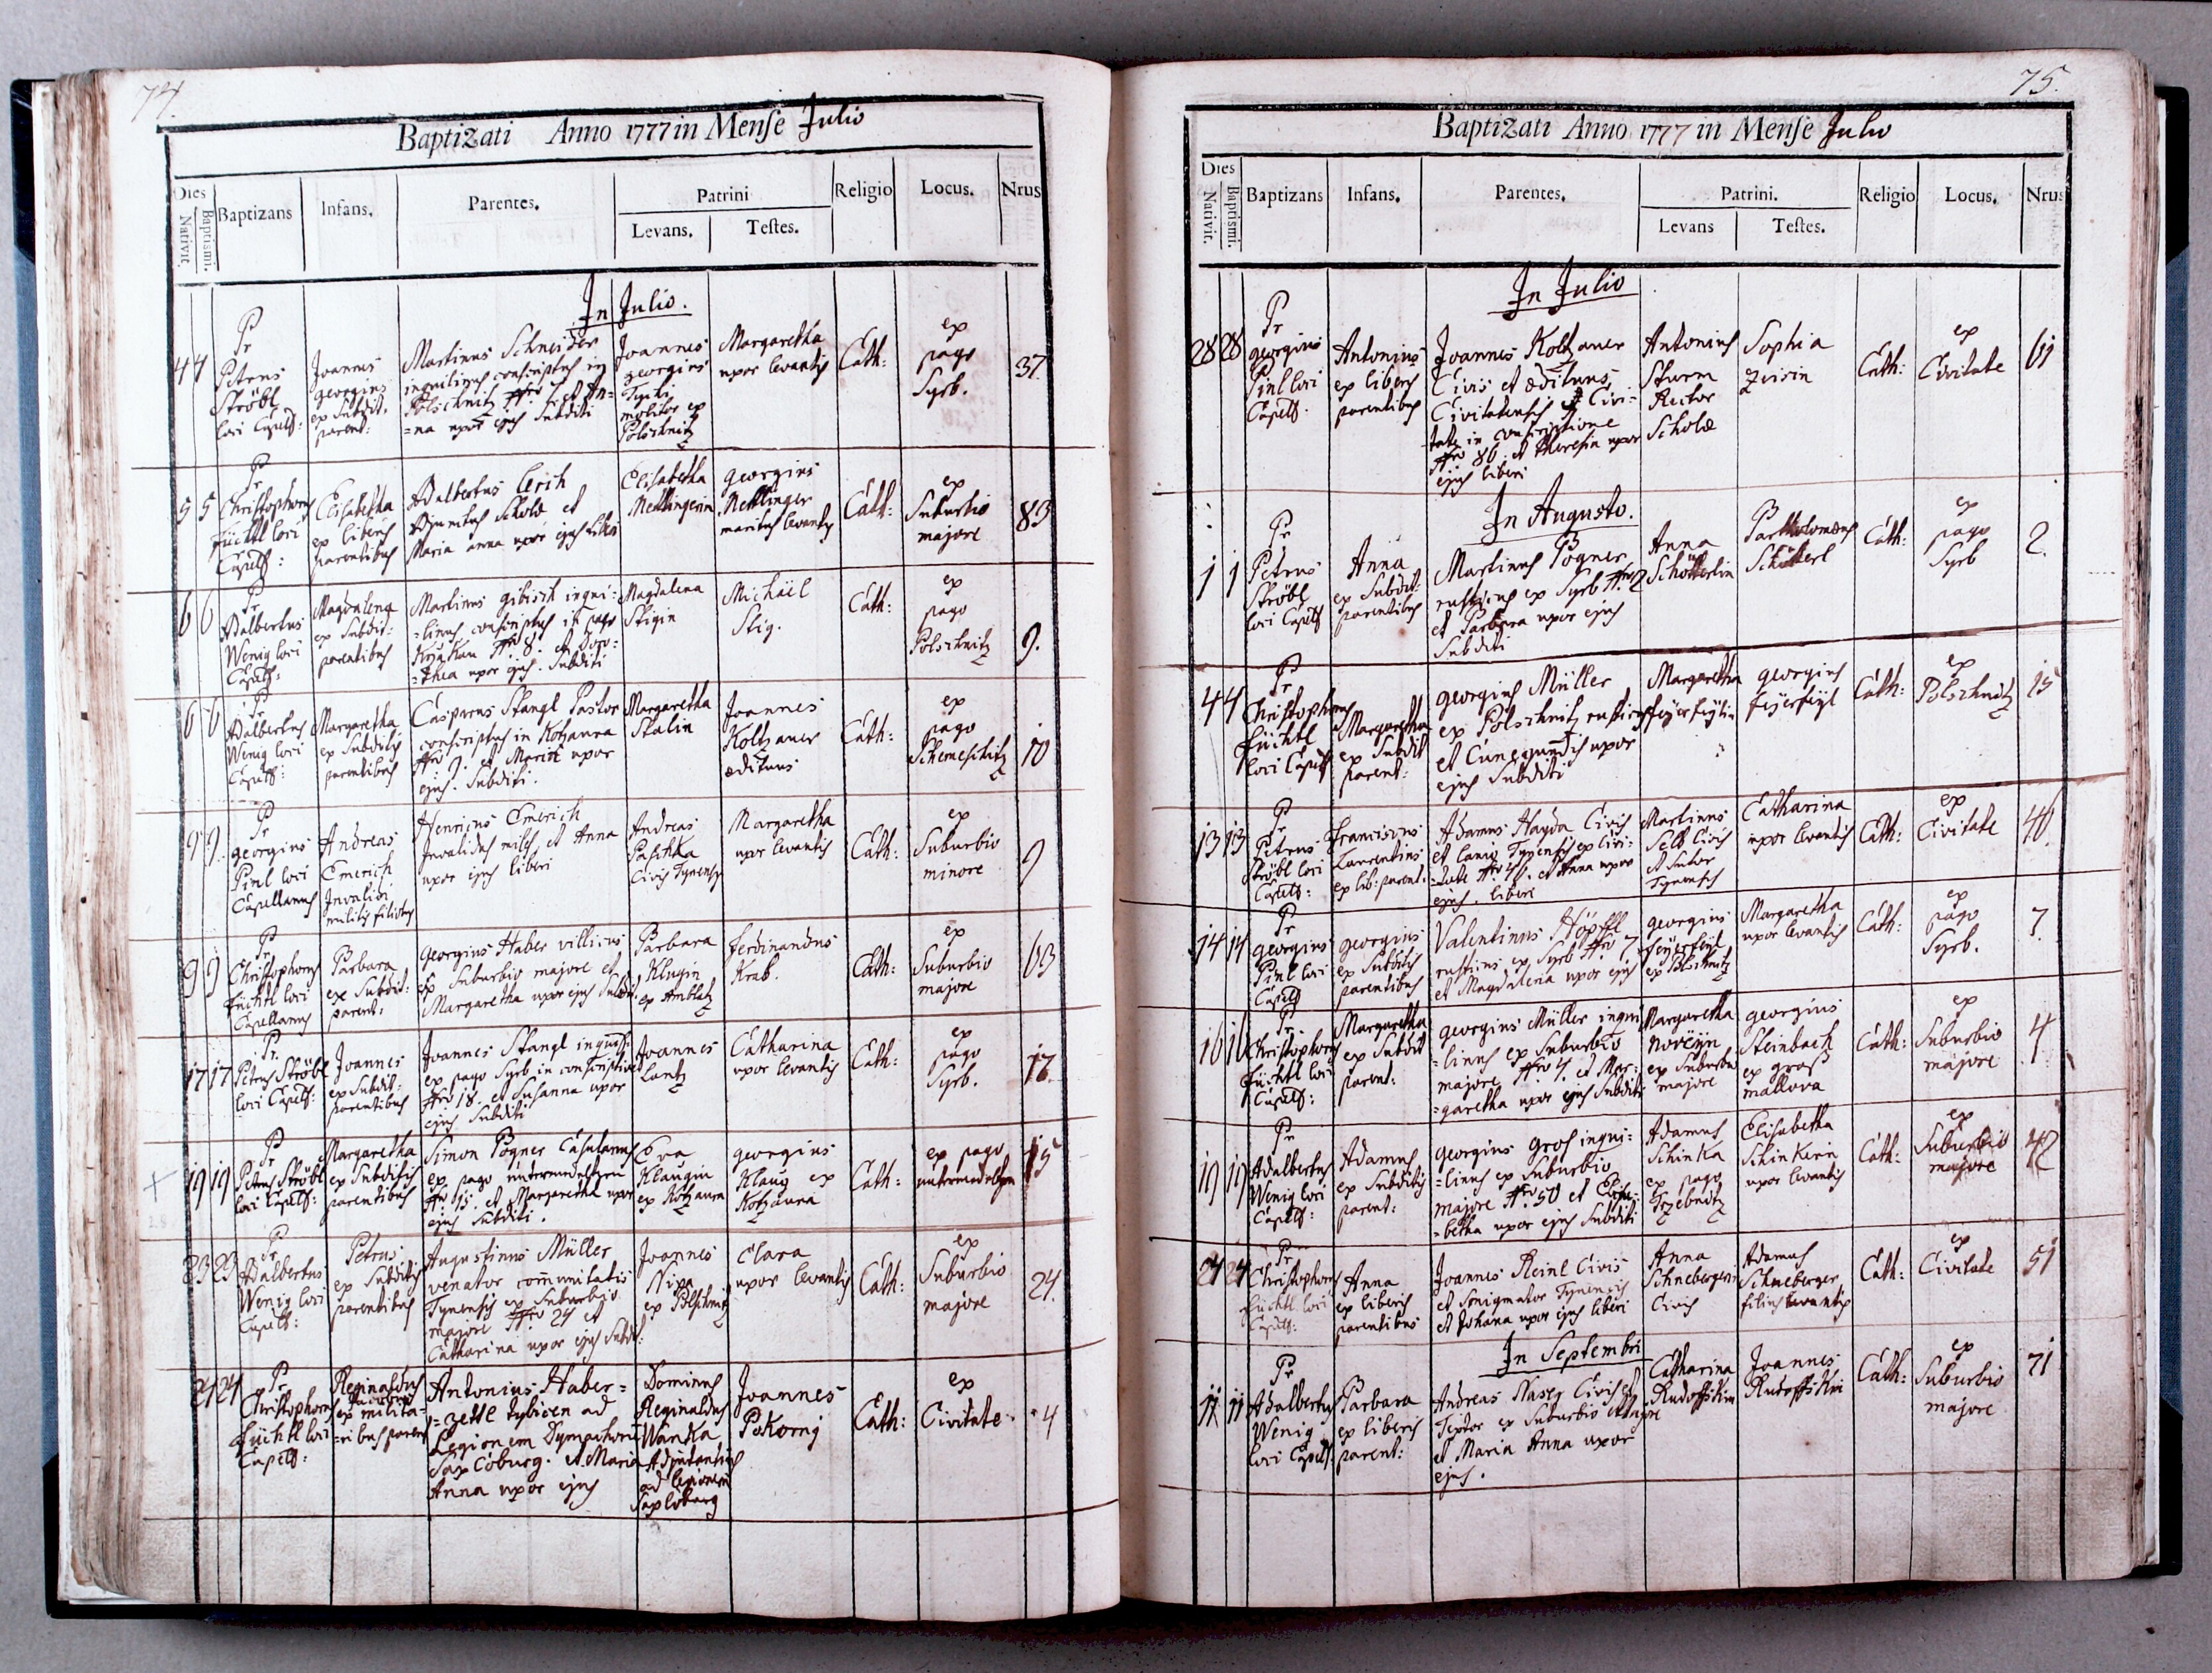 74.
Baptizati Anno 1777 in Mense Julio
Dies
Nativit.
Baptismi.
Baptizans
Infans.
Parentes.
Patrini
Levans.
Testes.
Religio
Locus.
Nrus
In Julio.
4 4
Pr
Petrus
Ströbl
loci Capell:
Joannes
georgius
ex Subdit.
parent:
Martinus Schneider
inquilinus conscriptus in
Polschnitz Nro 7. et An=
=na uxor ejus Subditi
Joannes
georgius
molitor ex
Polschnitz
Margaretha
uxor levantis
Cath:
ex
pago
Syrb.
37.
5 5
Pr
Christophorus
Füchtl loci
Capell:
Elisabetha
ex liberis
parentibus
Adalbertus Lerch
Adjunctus Scholæ et
Maria anna uxor ejus liberi
Elisabetha
Nettlingerin
georgius
Nettlinger
maritus levantis
Cath:
ex
Suburbio
majore
83
6 6
Pr
Adalbertus
Wenig loci
Capell:
Magdalena
ex Subdit:
parentibus
Martinus gibisch inqui:
=linus conscriptus in pago
Nro 8. et Doro:
=thea uxor ejus. Subditi
Magdalena
Stigin
Michael
Stig.
Cath:
ex
pago
Polschnitz
9.
6 6
Pr
Adalbertus
Wenig loci
Capell:
Margaretha
ex Subditis
parentibus
Casparus Stangl Pastor
conscriptus in Kotzaura
Nro 9. et uxor
ejus. Subditi.
Margaretha
Stalin
Joannes
Koltzauer
ædituus
Cath:
ex
pago
Schemeschitz
10
9 9
Pr
georgius
Pinl loci
Capellanus
Andreas
Emerich
Invalidi
militis filiolus
Henricus Emerich
Invalidus miles, et Anna
uxor ejus liberi
Andreas
Paschka
Civis Tynensis
Margaretha
uxor levantis
Cath:
ex
Suburbio
minore
9
9 9
Pr
Christophorus
Füchtl loci
Capellanus
Barbara
ex Subdit:
parent:
georgius Haber villicus
ex Suburbio majore et
Margaretha uxor ejus Subditi
Barbara
Klugin
ex Amblatz
Ferdinandus
Krab.
Cath:
ex
Suburbio
majore
63
17 17
Pr.
Petrus Ströbl
loci Capell:
Joannes
ex Subdit:
parentibus
Joannes Stangl
ex pago Syrb in conscriptione
Nro 18. et Susanna uxor
ejus Subditi
Joannes
Lantz
Catharina
uxor levantis
Cath:
ex
pago
Syrb.
+
19 19
Pr
Petrus Ströbl
loci Capell:
Margaretha
ex Subditis
parentibus
Simon Pogner Casularius
ex pago
Nr 15. et Margaretha uxor
ejus Subditi.
Eva
Klaugin
ex Kotzaura
georgius
Klaug ex
Kotzaura
Cath:
ex pago
15
23 23
Pr
Adalbertus
Wenig loci
Capell:
Petrus
ex Subditis
parentibus
Augustinus Müller
venator communitatis
Tynensis ex Suburbio
majore Nro 24 et
Catharina uxor ejus Subdit:
Joannes
Nixa
ex Polschnitz
Clara
uxor levantis
Cath:
ex
Suburbio
majore
24.
24 24
Pr
Christophorus
Füchtl loci
Capell:
Reginaldus
ex milita=
=ribus parent
Antonius Haber=
=zettl tubicen ad
Legionem Dymachorum
Sax Coburg. et Maria
Anna uxor ejus
Dominus
Reginaldus
Wanka
Adjutantius
ad legionem
Sax Coburg
Joannes
Pokorny
Cath:
ex
Civitate
4
75.
Baptizati Anno 1777 in Mense Julio
Dies
Nativit.
Baptismi.
Baptizans
Infans.
Parentes.
Patrini.
Levans
Testes.
Religio
Locus.
Nrus
In Julio
28 28
Pr
georgius
Pinl loci
Capell.
Antonius
ex liberis
parentibus
Joannes Koltzauer
Civis et ædituus
Civitatensis ex Civi=
tate in conscriptione
Nro 86. et Theresia uxor
ejus liberi
Antonius
Sturm
Rector
Scholæ
Sophia
Cath:
ex
Civitate
61
In Augusto.
1 1
Pr
Petrus
Ströbl
loci Capell
Anna
ex Subdit:
parentibus
Martinus Pogner
rusticus ex Syrb Nro 2
et Barbara uxor ejus
Subditi
Anna
Schötterlin
Bartholomæus
Schötterl
Cath:
ex
pago
Syrb
2.
4 4
Pr
Christophorus
Füchtl
loci Capell
Margaretha
ex Subdit
parent:
georgius Müller
ex Polschnitz rusticus
et Cunegundis uxor
ejus Subditi
Margaretha
feÿerfeÿlin
georgius
feÿerfeÿl
Cath:
ex
Polschnitz
15
13 13
Pr
Petrus
Ströbl loci
Capell:
Franciscus
Laurentius
ex lib: parent.
Adamus Hayda Civis
et lanio Tynensis ex Civi=
=tate Nro 40. et Anna uxor
ejus. liberi
Martinus
Selb Civis
et Sutor
Tynensis
Catharina
uxor levantis
Cath:
ex
Civitate
40.
14 14
Pr
georgius
Pinl loci
Capell
georgius
ex Subditis
parentibus
Valentinus Höpffl
rusticus ex Syrb Nro 7
et Magdalena uxor ejus
georgius
feÿerfeÿl
ex Polschnitz
Margaretha
uxor levantis
Cath:
ex
pago
Syrb.
7.
16 16
Pr
Christophorus
Füchtl loci
Capell:
Margaretha
ex Subdit
parent:
georgius Müller inqui
=linus ex Suburbio
majore Nro 4. et Mar:
=garetha uxor ejus Subditi
Margaretha
ex Suburbio
majore
georgius
Steinbach
ex groß
mallova
Cath:
ex
Suburbio
majore
4
19 19
Pr
Adalbertus
Wenig loci
Capell:
Adamus
ex Subditis
parent:
georgius gros inqui=
=linus ex Suburbio
majore Nro 50 et Elisa=
=betha uxor ejus Subditi
Adamus
Schinka
ex pago
Trzebnitz
Elisabetha
Schinkerin
uxor levantis
Cath:
ex
Suburbio
majore
24 24
Pr
Christophorus
Füchtl loci
Capell:
Anna
ex liberis
parentibus
Joannes Reinl Civis
et Tynensis
et Johana uxor ejus liberi
Anna
Schnebergerin
Civis
Adamus
Schneberger
filius levantis
Cath:
ex
Civitate
51
In Septembri
11 11
Pr
Adalbertus
Wenig
loci Capell
Barbara
ex liberis
parent:
Andreas Naser Civis et
Textor ex Suburbio majore
et Maria Anna uxor
ejus.
Catharina
Joannes
Cath:
ex
Suburbio
majore
71